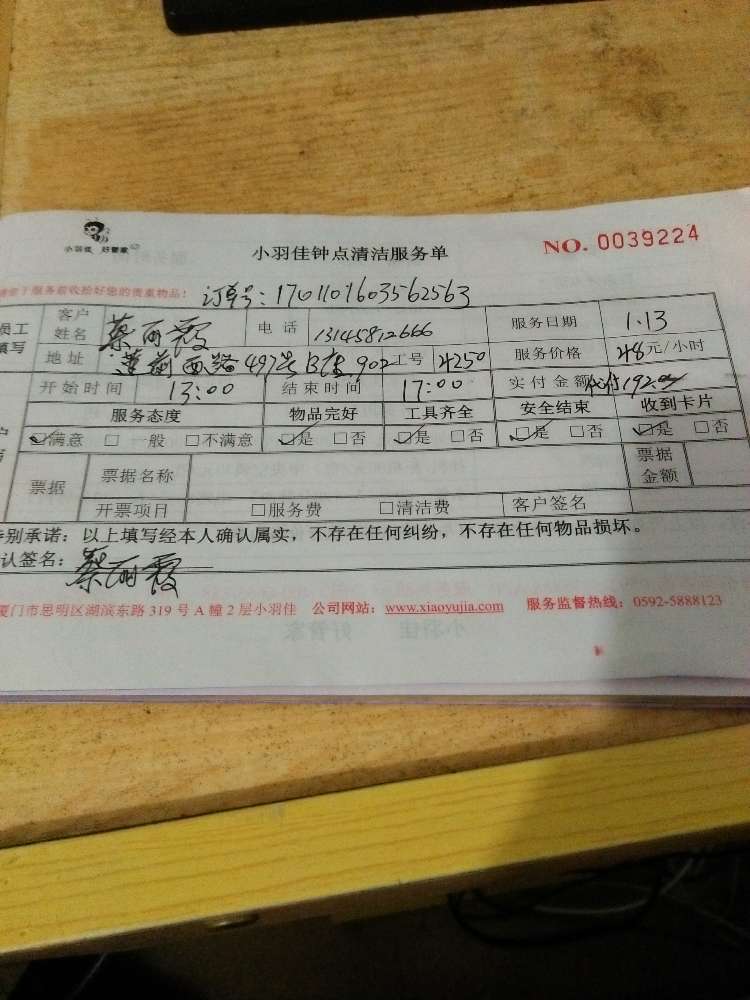 小羽佳 好管家
小羽佳钟点清洁服务单
NO. 0039224
于服务前收拾好您的贵重物品!
订单号:17011071603562563
员工填写
客户姓名 蔡丽霞 电话 13145812666 服务日期 1.13
地址 莲前西路497号B座902 工号 4250 服务价格 48元/小时
开始时间 13:00 结束时间 17:00 实付金额 192.00
服务态度 物品完好 工具齐全 安全结束 收到卡片
☑满意 □一般 □不满意 ☑是 □否 ☑是 □否 ☑是 □否 ☑是 □否
票据 票据名称 票据金额
开票项目 □服务费 □清洁费 客户签名
别承诺:以上填写经本人确认属实,不存在任何纠纷,不存在任何物品损坏。
认签名:蔡丽霞
厦门市思明区湖滨东路319号A幢2层小羽佳 公司网站:www.xiaoyujia.com 服务监督热线:0592-5888123